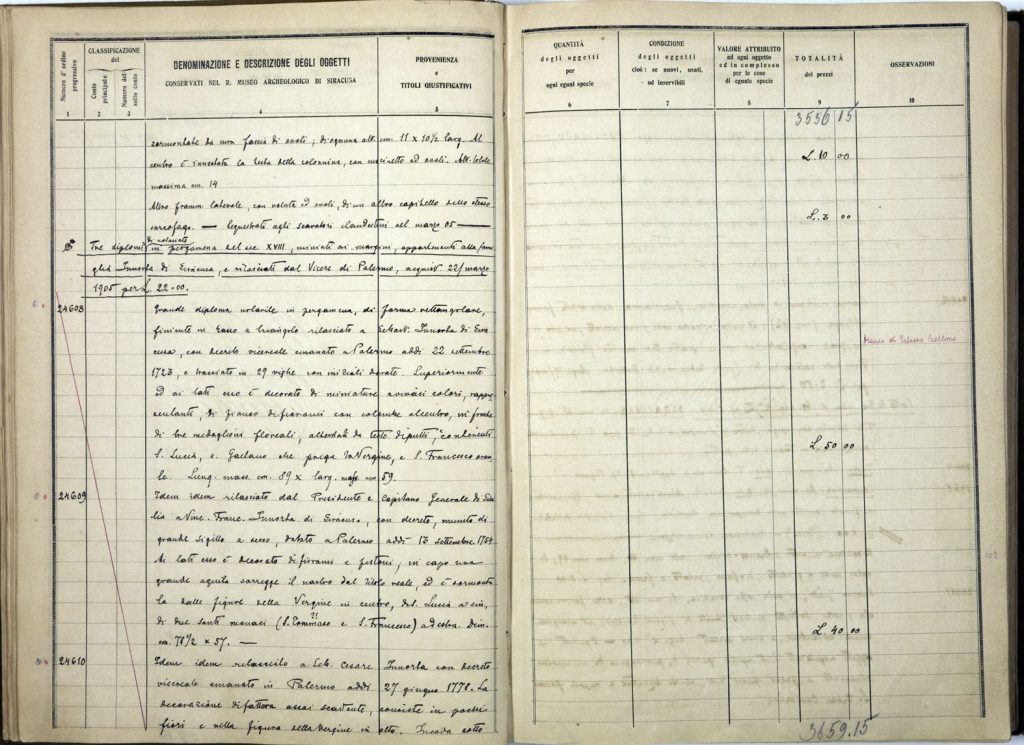 Numero d'ordine progressivo
CLASSIFICAZIONE
del
Conto principale
Numero del sotto conto
DENOMINAZIONE E DESCRIZIONE DEGLI OGGETTI
CONSERVATI NEL R. MUSEO ARCHEOLOGICO DI SIRACUSA
PROVENIENZA
e
TITOLI GIUSTIFICATIVI
1 2 3 4 5
sormontate da una fascia di ovoli; di ognuna alt. cm. 11 x 10½ larg. Al
centro è innestata la testa della colonnina, con ad ovoli. Alt. totale
massima cm. 14
Altro framm. laterale, con voluta ed ovoli, di un altro capitello dello stesso
sarcofago. — Sequestrati agli scavatori clandestini nel marzo 05 —
di notariato
Tre diplomi in pergamena del sec. XVIII, miniati ai margini, appartenenti alla fami
glia Innorta di Siracusa, e rilasciati dal Vicere di Palermo, acquist. 22/marzo
1905 per L. 22.00.
24608 Grande diploma notarile in pergamena, di forma rettangolare,
finiente in basso a triangolo rilasciato a Sebast. Innorta di Sira
cusa, con decreto vicereale emanato a Palermo addi 22 settembre
1723, e tracciato in 29 righe con iniziali dorate. Superiormente
ed ai lati esso è decorato di miniature a vivaci colori, rappre
sentanti di fiorami con colombe al centro, in fronte
di tre medaglioni floreali, alternati da teste di putti, contenenti
S. Lucia, S. Gaetano che prega la Vergine, e S. Francesco oran
te. Lung. mass. cm. 89 x larg. mass. cm 59.
24609 Idem idem rilasciato dal Presidente e Capitano Generale di Sici
lia a Vinc. Franc. Innorta di Siracusa, con decreto, munito di
grande sigillo a secco, datato a Palermo addi 13 settembre
Ai lati esso è decorato di fiorami e festoni; in capo una
grande aquila sorregge il nastro dal titolo reale, ed è sormonta
ta dalle figure della Vergine in centro, di S. Lucia a sin.
di due santi monaci (S. Tommaso ?! e S. Francesco) a destra. Dim.
cm. 78½ x 57. —
24610 Idem idem rilasciato a Seb. Cesare Innorta con decreto
vicereale emanato in Palermo addi 27 giugno 1778. La
decorazione di fattura assai scadente, consiste in pochi
fiori e nella figura della Vergine in alto. sotto
QUANTITÀ
degli oggetti
per
ogni egual specie
CONDIZIONE
degli oggetti
cioè: se nuovi, usati,
od inservibili
VALORE ATTRIBUITO
ad ogni oggetto
ed in complesso
per le cose
di eguale specie
TOTALITÀ
dei prezzi
OSSERVAZIONI
6 7 8 9 10
3556 15
L. 10 00
L. 3 00
Museo di Palazzo Bellomo
L. 50 00
L. 40 00
3659.15